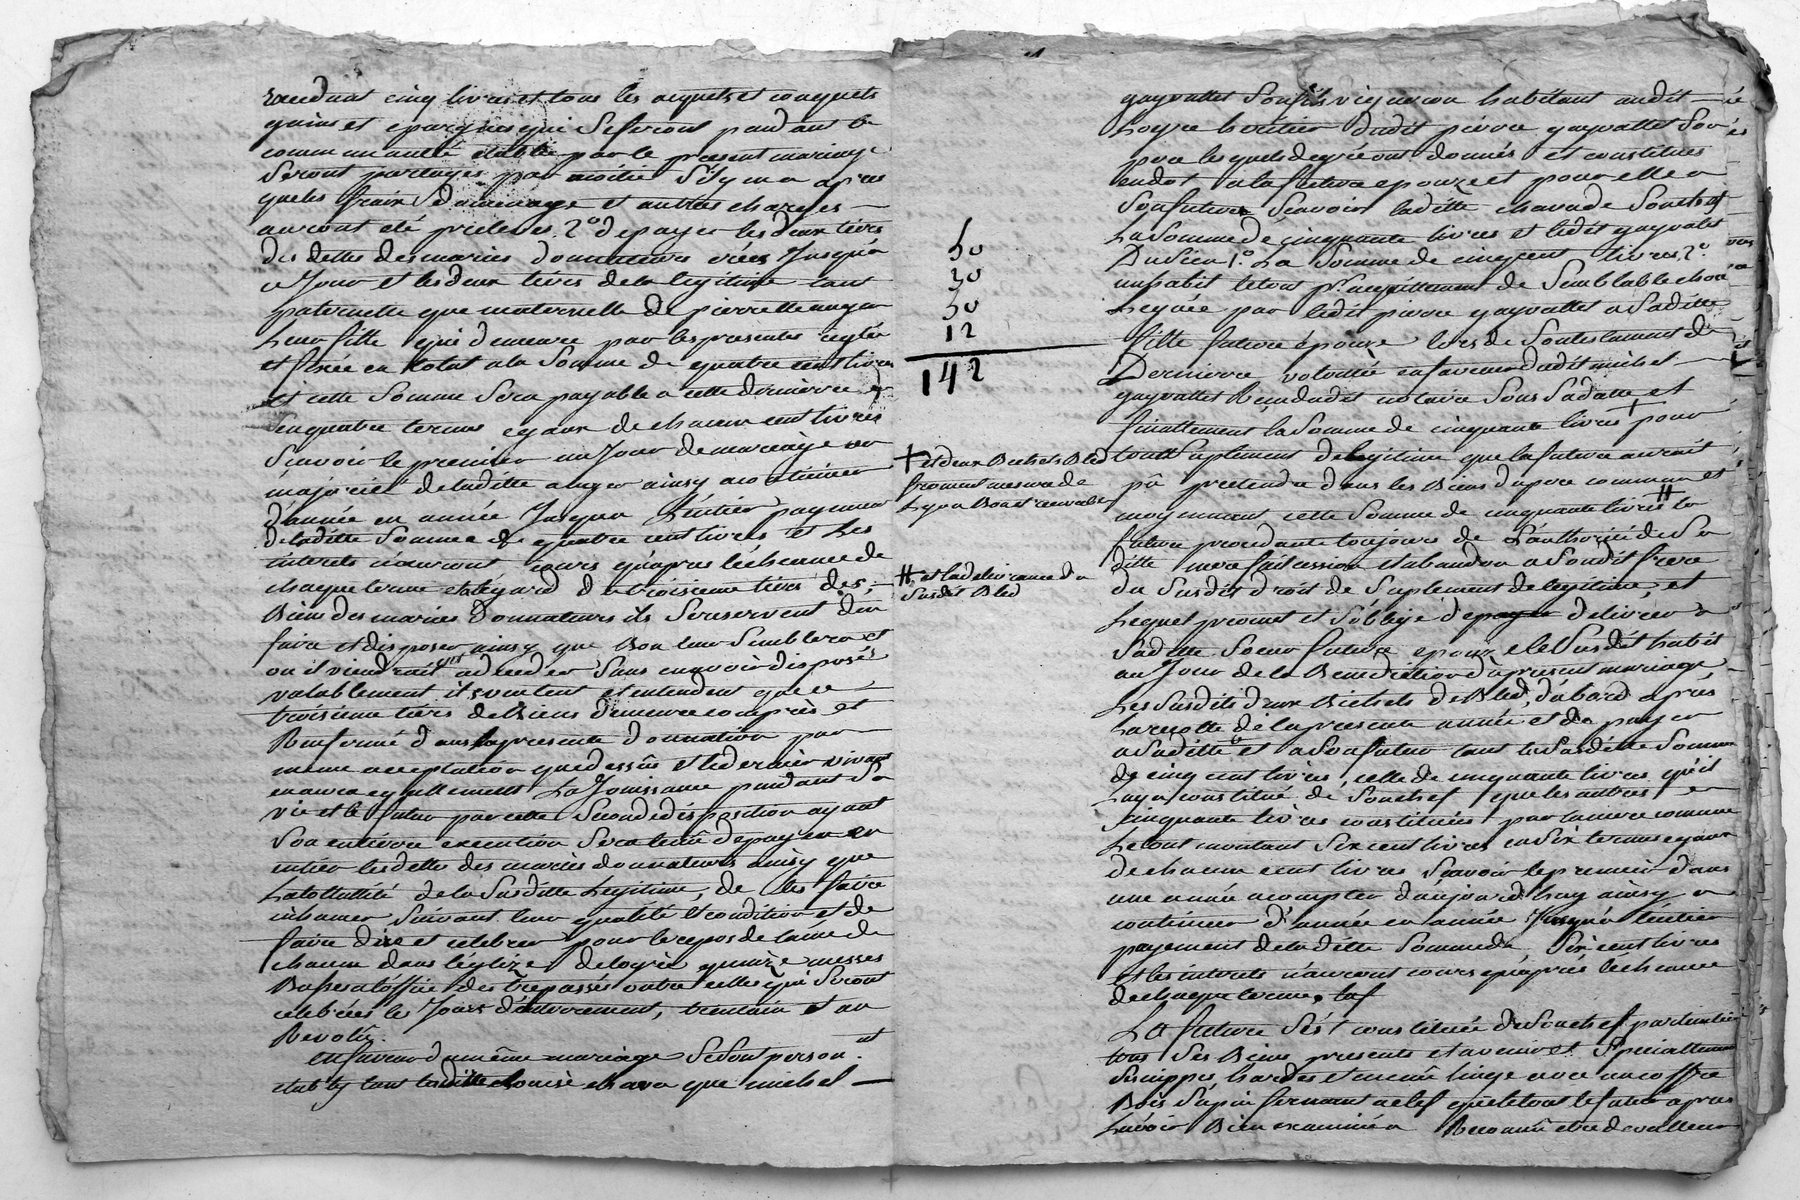 cinq livres et tous les acquets et conquets
gains et epargnes qui se feront pandant la
communauté etablie par le present mariage
seront partagés par moitié s'il y en a apres
que les frais de menage et autres charges —
auront eté prelevés, 2° de payer les deux tiers
des dettes des mariés donnateurs crées jusqu'a
ce jour et les deux tiers de la legitime tant
paternelle que maternelle de pierrette anger
leur fille qui demeure par les presentes reglée
et fixée en total a la somme de quatre cent livres
et cette somme sera payable a cette derniere
en quatre termes egaux de chacun cent livres
scavoir le premier au jour de mariage ou
majorité de laditte anger ainsy a continuer
d'année en année jusqu'a l'entier payment
de laditte somme de quatre cent livres et les
interets n'auront cours qu'apres l'echeance de
chaque terme et a l'egard du troisieme tiers des
biens des mariés donnateurs ils se reservent d'en
faire et disposer ainsy que bon leur semblera et
ou il viendroit a deceder sans en avoir disposés
valablement, ils veulent et entendent que ce —
troisieme tiers de biens demeure compris et
renfermé dans la presente donnation par
meme acceptation que dessus et le dernier vivant
en aura egallement la jouissance pandant sa
vie et le futur par cette seconde disposition ayant
son entiere execution sera tenu de payer en
entier les dettes des mariés donnateurs ainsy que
la totallité de la susditte legitime, de les faire
inhumer suivant leur qualité et condition et de
faire dire et celebrer pour le repos de l'ame de
chacun dans l'eglize de logre quinze messes
basses a l'office des trepassés outre celles qui seront
celebrées les jours d'enterrement, trentain et au
bevolu.
en faveur du même mariage se sont person.nt
etablis tant laditte louise chava que michel —
50
30
50
12
142
+ et deux bichets bled
froment mesure de
Lyon bon et recevable
# et la delivrance du
susdit bled
gayvallet son fils vigneron habitant audit
Logre heritier dudit pierre gayvallet son
pere lesquels de gré ont donnés et constitués
en dot a la future epouze et pour elle a
son futur scavoir laditte chava de son chef
la somme de cinquante livres et ledit gayvallet
du sien 1° la somme de cinq cent livres, 2°
un habit le tout p.r acquittement de semblable chose
leguée par ledit pierre gayvallet a saditte
fille future epouze lors de son testament de
derniere volonté en faveur dudit michel —
gayvallet reçu dudit notaire sous sa datte et
finallement la somme de cinquante livres + pour
tout suplement de legitime que la future auroit
pû pretendre dans les biens du pere commun et
moyennant cette somme de cinquante livres # la
future procedante toujours de l'authorité de sa
ditte mere fait cession et abandon a sondit frere
du susdit droit de suplement de legitime, et
lequel promet et s'oblige de delivrer a
saditte soeur future epouze le susdit habit
au jour de la benediction du present mariage
les susdits deux bichets de bled, d'abord après
la recolte de la presente année et de payer
a saditte et a son futur tant la susditte somme
de cinq cent livres, celle de cinquante livres qu'il
luy a constitué de son chef que les autres
cinquante livres constituées par la mere commune
le tout montant six cent livres en six termes egaux
de chacun cent livres scavoir le premier dans
une année a compter d'aujourd'huy ainsy a
continuer d'année en année jusqu'a l'entier
payement de la ditte somme de six cent livres
et les interets n'auront cours qu'après l'echeance
de chaque terme
La future s'est constituée de son chef
tous ses biens presents et avenir et specialement
ses nippes hardes et menu linge avec un coffre
bois sapin fermant a clef que le tout le futur apres
l'avoir bien examiné a reconnû etre de valleur